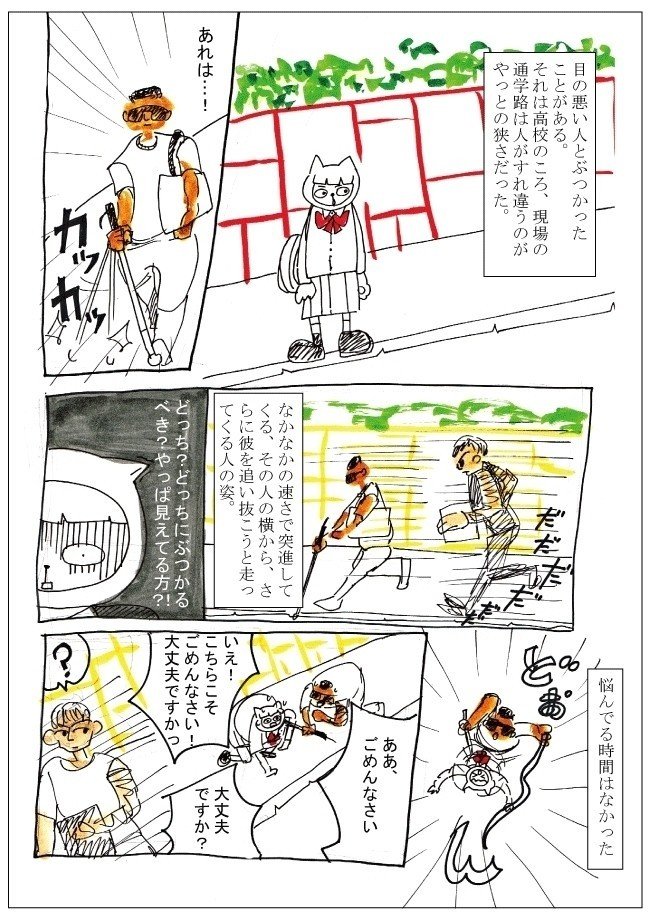 目の悪い人とぶつかった
ことがある。
それは高校のころ、現場の
通学路は人がすれ違うのが
やっとの狭さだった。
あれは…！
カッ
カッ
なかなかの速さで突進して
くる、その人の横から、さ
らに彼を追い抜こうと走っ
てくる人の姿。
だだだ
だだ
どっち？どっちにぶつかる
べき？やっぱ見えてる方？！
悩んでる時間はなかった
どぉ
ん
ああ、
ごめんなさい
いえ！
こちらこそ
ごめんなさい！
大丈夫ですかっ
大丈夫
ですか？
？